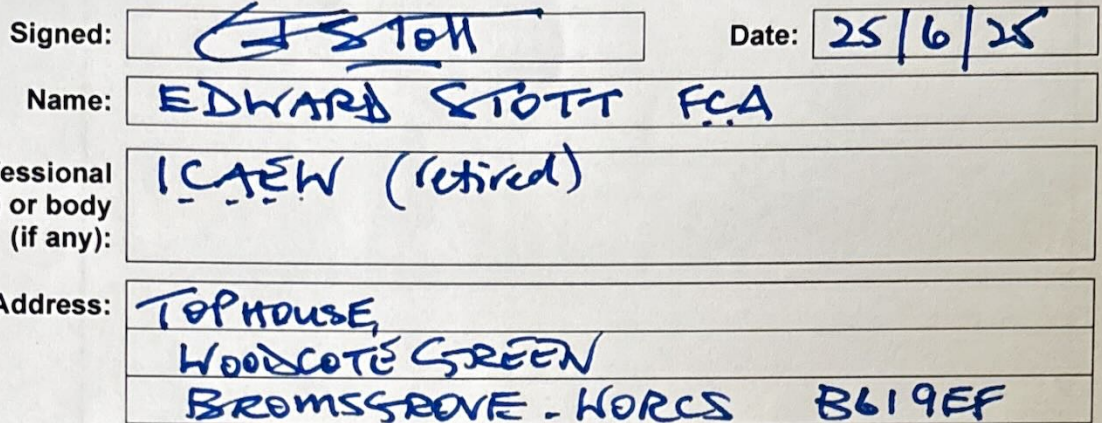 Signed: EJ Stott Date: 25/6/25
Name: EDWARD STOTT FCA
essional ICAEW (retired)
or body
(if any):
Address: TOP HOUSE,
WOODCOTE GREEN
BROMSGROVE - WORCS B61 9EF